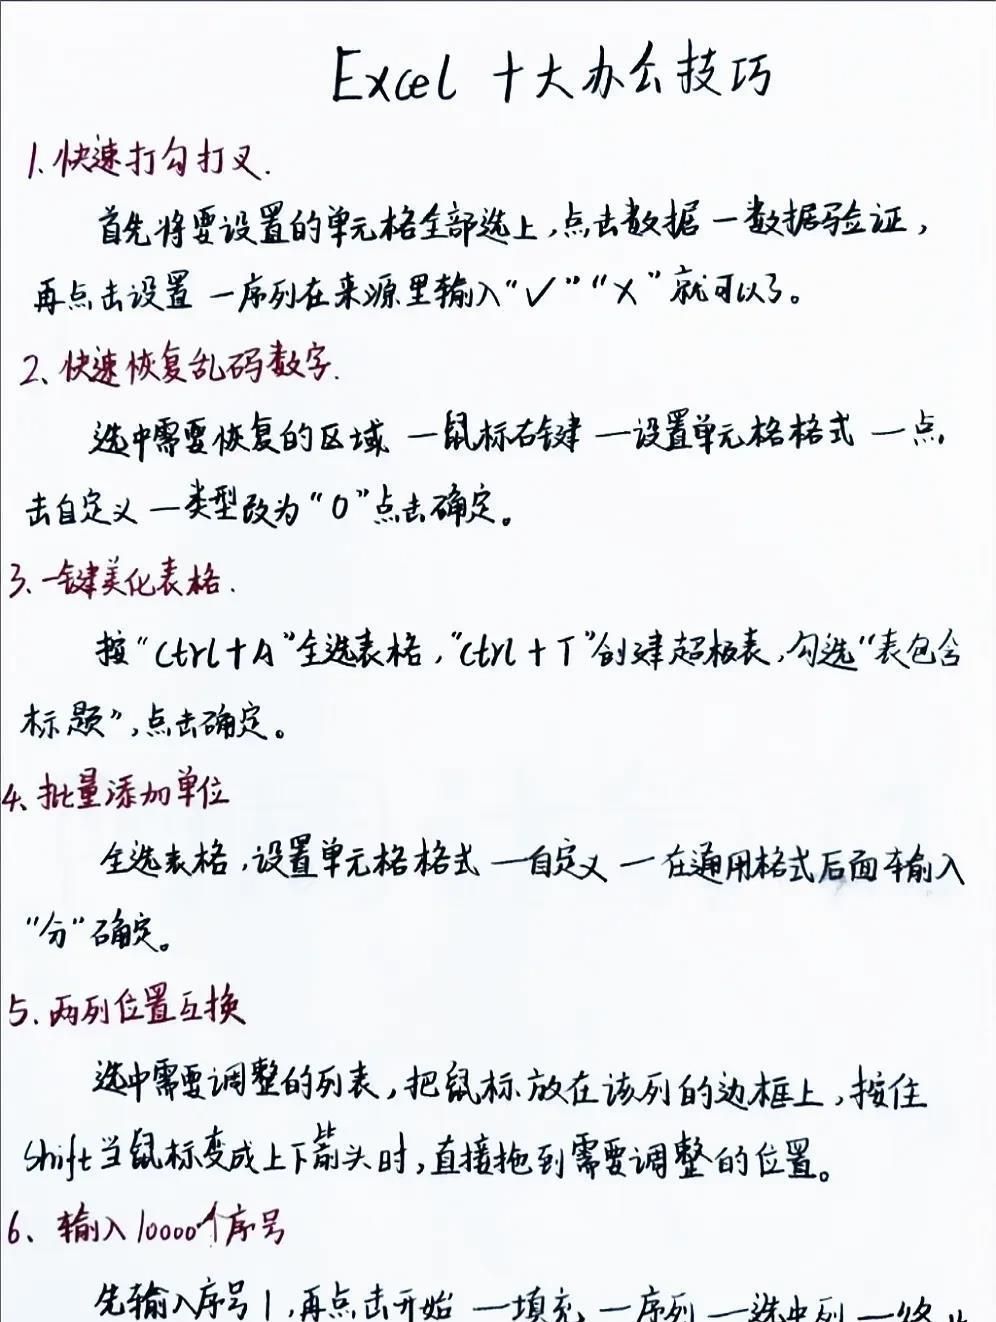 Excel 十大办公技巧
1.快速打勾打叉.
首先将要设置的单元格全部选上,点击数据 一数据验证,
再点击设置 一序列在来源里输入“✓”“X”就可以了。
2、快速恢复乱码数字.
选中需要恢复的区域 一鼠标右键 一设置单元格格式 一点
击自定义 一类型改为“0”点击确定。
3.一键美化表格.
按“Ctrl+A”全选表格,“Ctrl+T”创建超极表,勾选“表包含
标题”,点击确定。
4.批量添加单位
全选表格,设置单元格格式 一自定义 一在通用格式后面输入
“分”确定。
5.两列位置互换
选中需要调整的列表,把鼠标放在该列的边框上,按住
Shift当鼠标变成上下箭头时,直接拖到需要调整的位置。
6、输入10000个序号
先输入序号1,再点击开始 一填充 一序列 一选中列 一终止